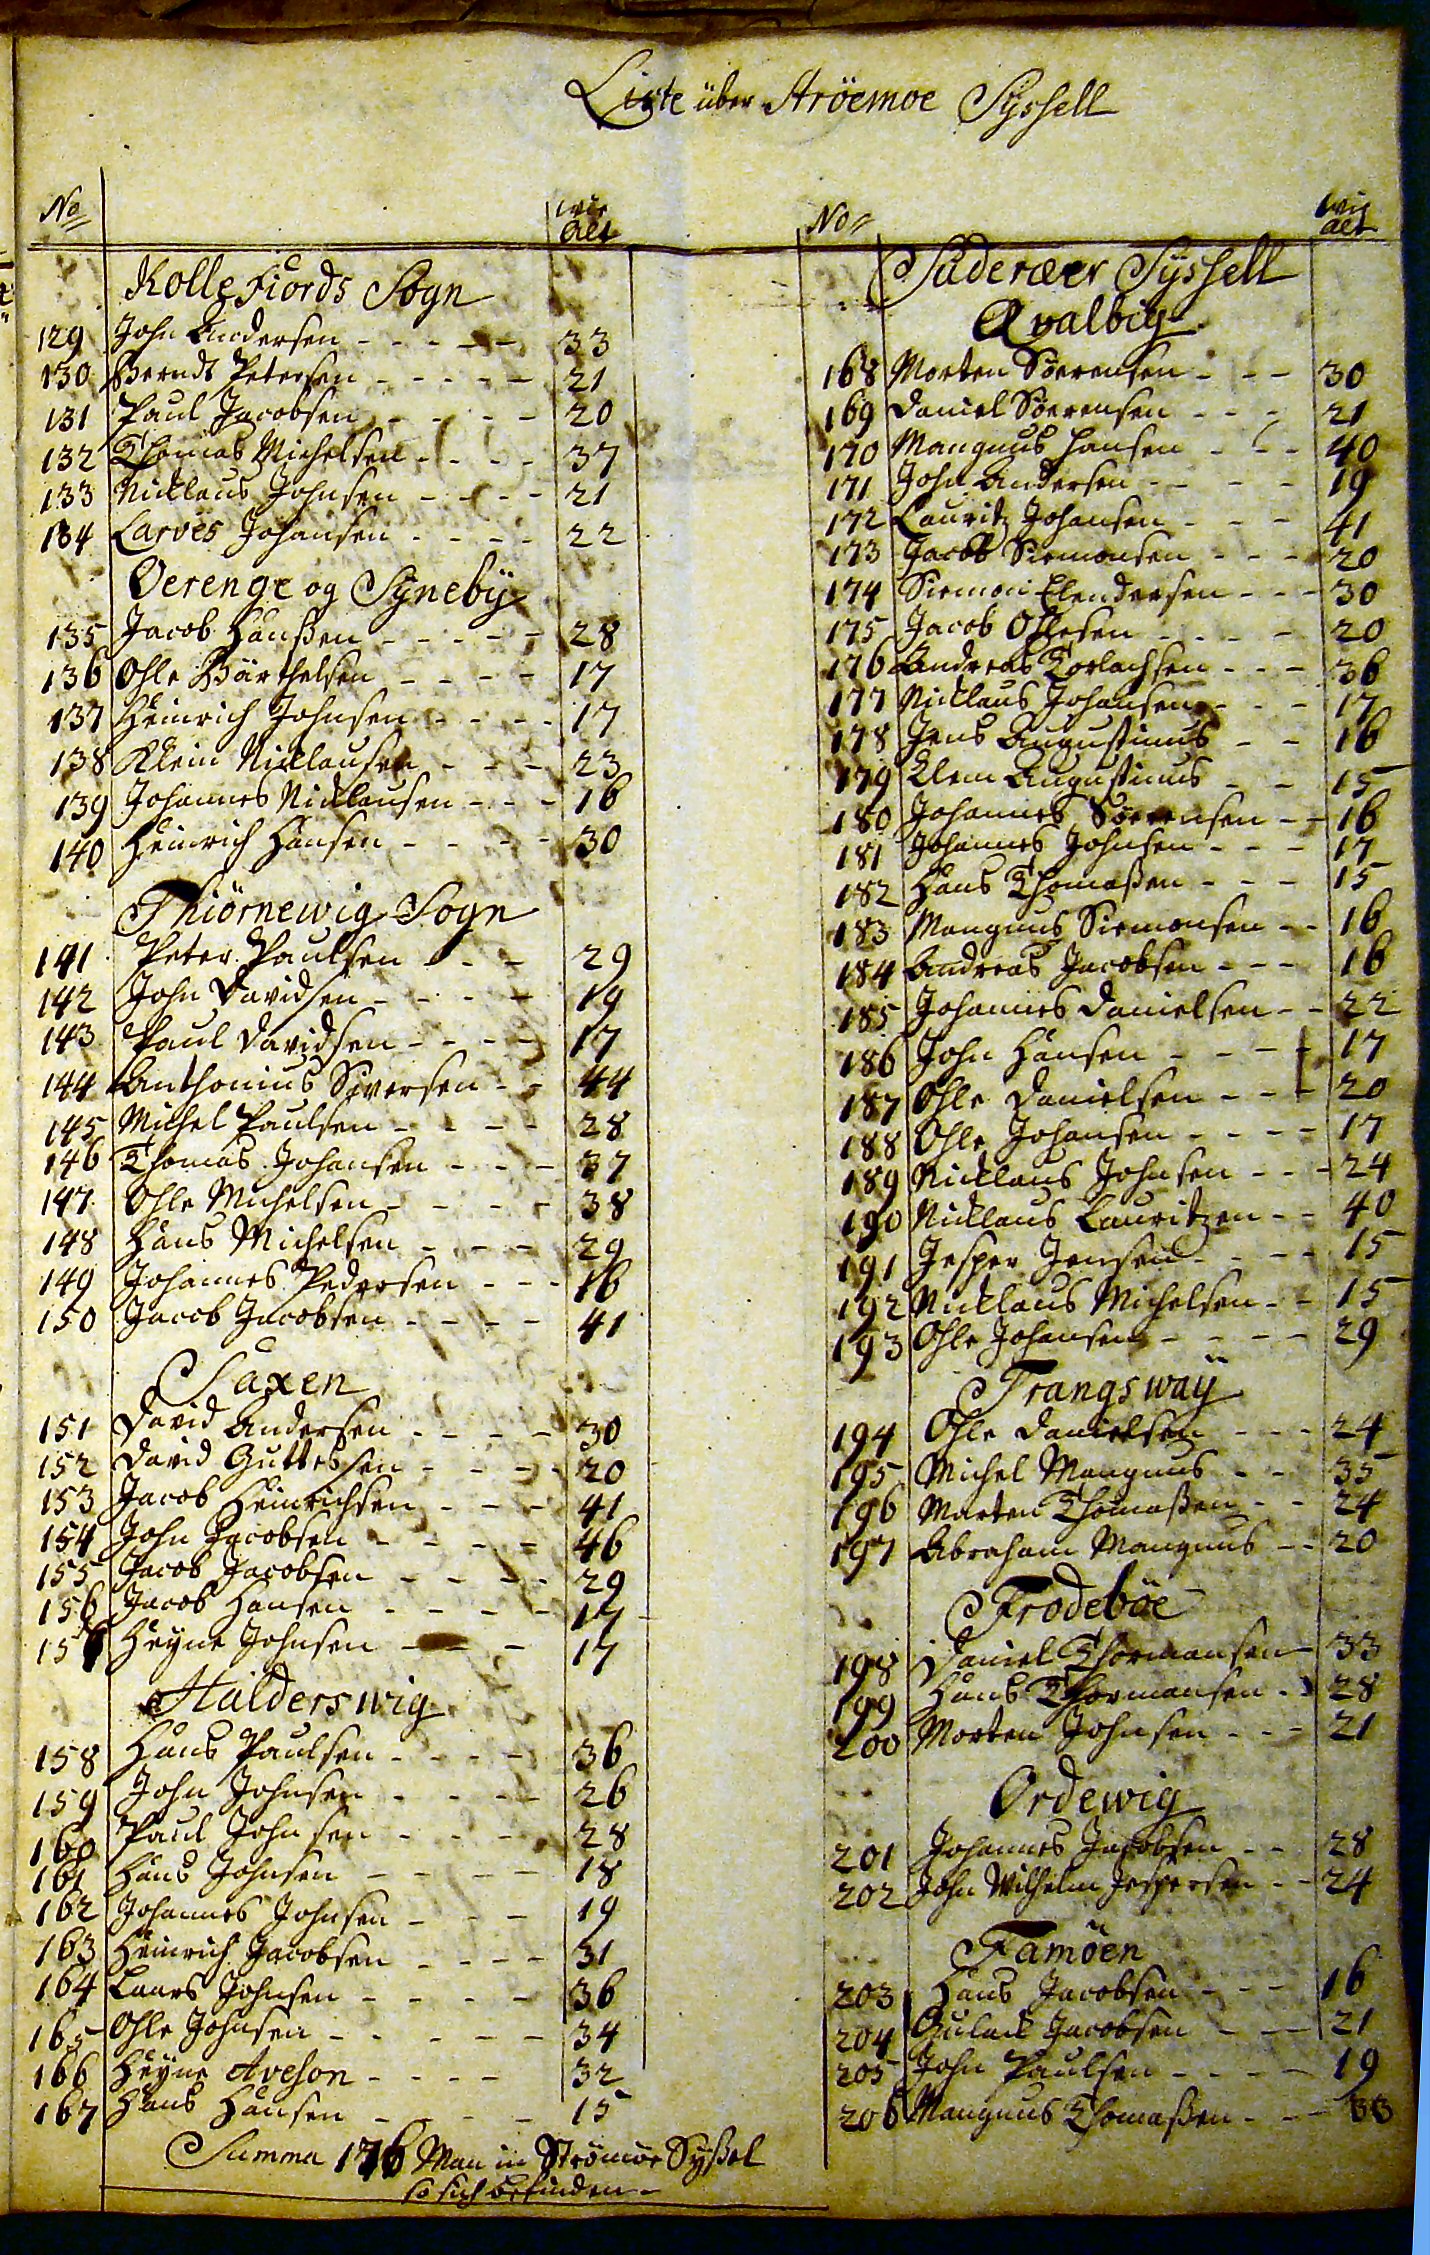 Liste über Ströemoe Syssell
No
wie alt
Kolle Fiords Sogn
129 John Andersen - - - - - 33
130 Berndt Petersen - - - - - 21
131 Paul Jacobsen - - - - 20
132 Thomas Michelsen - - - - 37
133 Nicklaus Johnsen - - - - 21
134 Larves Johansen - - - - 22
Oerenge og Syneby
135 Jacob Hanßen - - - - - 28
136 Ohle Barthelsen - - - - 17
137 Heinrich Johnsen - - - - 17
138 Klein Nicklausen - - - 23
139 Johannes Nicklausen - - - 16
140 Heinrich Hansen - - - - 30
Thiörnewig Sogn
141 Peter Paulsen - - - 29
142 John Davidsen - - - - 19
143 Paul Davidsen - - - - 17
144 Anthonius Siversen - - 44
145 Michel Paulsen - - - - 28
146 Thomas Johansen - - - 37
147 Ohle Michelsen - - - - 38
148 Hans Michelsen - - - - 29
149 Johannes Pedersen - - - 16
150 Jacob Jacobsen - - - - 41
Saxen
151 David Andersen - - - - 30
152 David Guttessen - - - - 20
153 Jacob Heinrichsen - - - 41
154 John Jacobsen - - - - 46
155 Jacob Jacobsen - - - - 29
156 Jacob Hansen - - - - 17
157 Heyne Johnsen - - - 17
Halderswig
158 Hans Paulsen - - - - 36
159 John Johnsen - - - - 26
160 Paul Johnsen - - - - 28
161 Hans Johnsen - - - - 18
162 Johannes Johnsen - - - 19
163 Heinrich Jacobsen - - - - 31
164 Laars Johnsen - - - - - 36
165 Ohle Johnsen - - - - - 34
166 Heyne Aveson - - - - 32
167 Hans Hansen - - - - 15
Summa 176 Man in Strömöe Syßel
so sich befinden -
No
wie alt
Süderöer Syssell
Qvalbig
168 Morten Söerensen - - - 30
169 Daniel Söerensen - - - 21
170 Mangnus Hansen - - - 40
171 John Andersen - - - - 19
172 Lauritz Johansen - - - 41
173 Jacob Siemonsen - - - 20
174 Siemon Elendersen - - - 30
175 Jacob Ohlesen - - - - 20
176 Andreas Torlachsen - - - 36
177 Nicklaus Johansen - - - 17
178 Jens Augustinus - - 16
179 Clem Augustinus - - 15
180 Johannes Söerensen - - 16
181 Johannes Johnsen - - - 17
182 Hans Thomaßen - - - 15
183 Mangnus Siemonsen - - 16
184 Andreas Jacobsen - - - 16
185 Johannes Danielsen - - 22
186 John Hansen - - - - 17
187 Ohle Danielsen - - - 20
188 Ohle Johansen - - - - 17
189 Nicklaus Johnsen - - - 24
190 Nicklaus Lauritzen - - 40
191 Jesper Jensen - - - - 15
192 Nicklaus Michelsen - - 15
193 Ohle Johansen - - - - 29
Trangsway
194 Ohle Danielsen - - - 24
195 Michel Mangnus - - 35
196 Marten Thomaßen - - 24
197 Abraham Mangnus - - 20
Frodeböe
198 Daniel Thormansen - 33
199 Hans Thormansen - - 28
200 Morten Johnsen - - - 21
Ordewig
201 Johannes Jacobsen - - 28
202 John Wilhelm Jespersen - - 24
Famöen
203 Hans Jacobsen - - - 16
204 Gulack Jacobsen - - 21
205 John Paulsen - - - - 19
206 Mangnus Thomaßen - - - 33